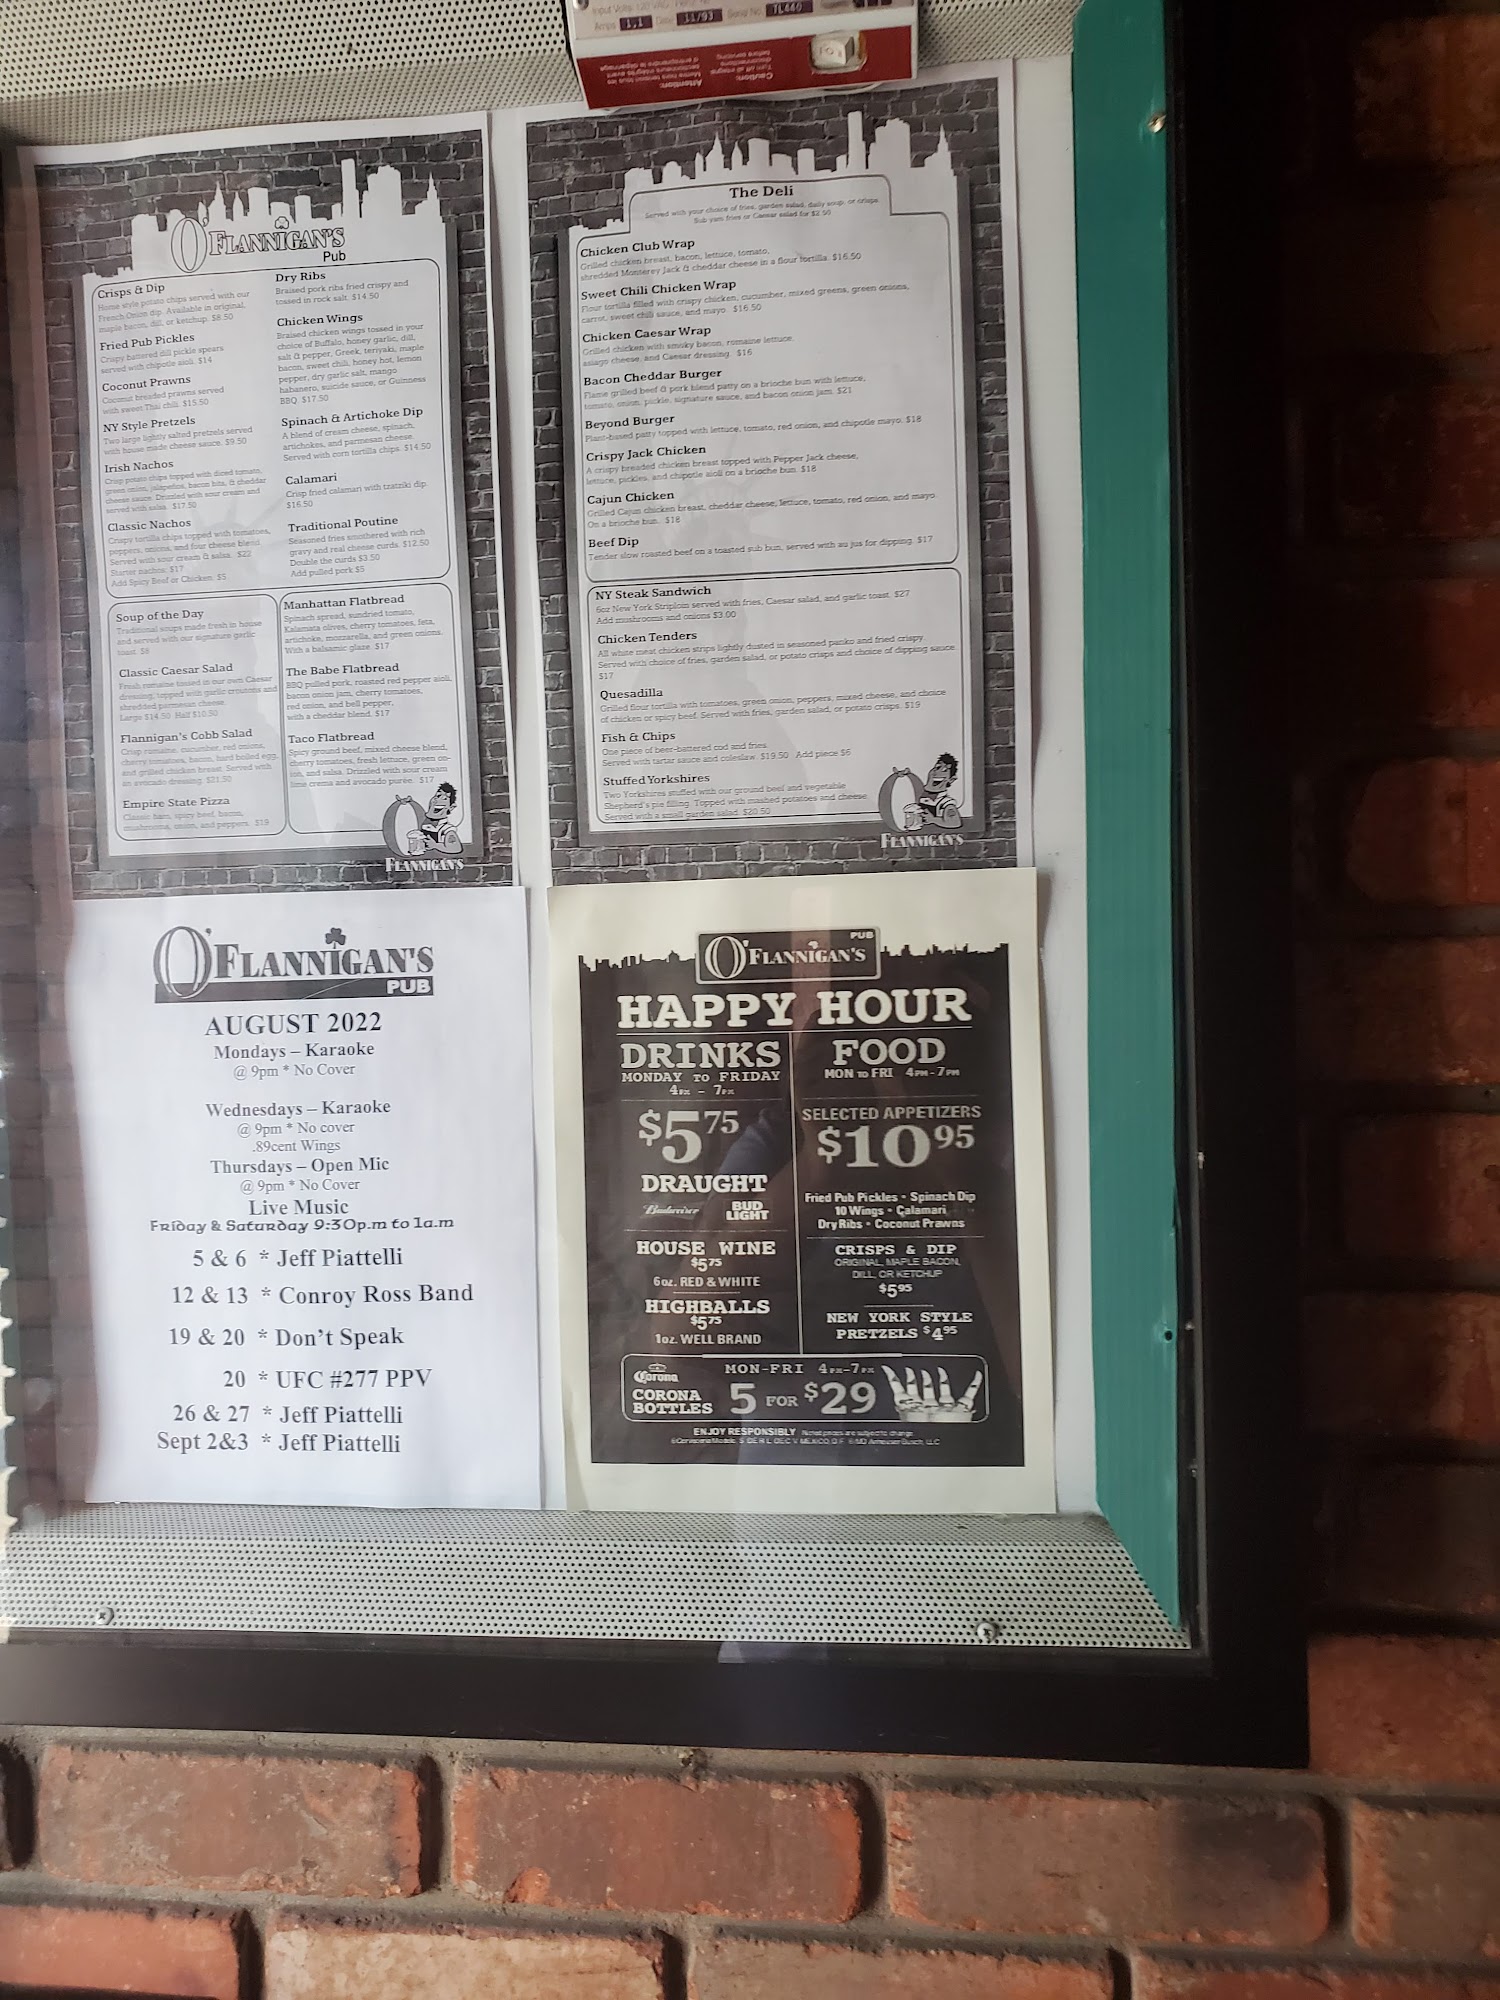 Input Volts 120
Amps 1.1 Date 11/93 Serial No TL440
Caution:
Turn off all
before servicing
Attention:
O'FLANNIGAN'S
Pub
Crisps & Dip
Home style potato chips served with our
French Onion dip. Available in original,
maple bacon, dill, or ketchup. $8.50
Fried Pub Pickles
Crispy battered dill pickle spears
served with chipotle aioli. $14
Coconut Prawns
Coconut breaded prawns served
with sweet Thai chili. $15.50
NY Style Pretzels
Two large lightly salted pretzels served
with house made cheese sauce. $9.50
Irish Nachos
Crisp potato chips topped with diced tomato,
green onion, jalapeños, bacon bits, & cheddar
cheese sauce. Drizzled with sour cream and
served with salsa. $17.50
Classic Nachos
Crispy tortilla chips topped with tomatoes,
peppers, onions, and four cheese blend.
Served with sour cream & salsa. $22
Starter nachos: $17
Add Spicy Beef or Chicken: $5
Dry Ribs
Braised pork ribs fried crispy and
tossed in rock salt. $14.50
Chicken Wings
Braised chicken wings tossed in your
choice of Buffalo, honey garlic, dill,
salt & pepper, Greek, teriyaki, maple
bacon, sweet chili, honey hot, lemon
pepper, dry garlic salt, mango
habanero, suicide sauce, or Guinness
BBQ. $17.50
Spinach & Artichoke Dip
A blend of cream cheese, spinach,
artichokes, and parmesan cheese.
Served with corn tortilla chips. $14.50
Calamari
Crisp fried calamari with tzatziki dip.
$16.50
Traditional Poutine
Seasoned fries smothered with rich
gravy and real cheese curds. $12.50
Double the curds $3.50
Add pulled pork $5
Soup of the Day
Traditional soups made fresh in house
and served with our signature garlic
toast. $8
Classic Caesar Salad
Fresh romaine tossed in our own Caesar
dressing, topped with garlic croutons and
shredded parmesan cheese.
Large $14.50 Half $10.50
Flannigan's Cobb Salad
Crisp romaine, cucumber, red onions,
cherry tomatoes, bacon, hard boiled egg,
and grilled chicken breast. Served with
an avocado dressing. $21.50
Empire State Pizza
Classic ham, spicy beef, bacon,
mushrooms, onion, and peppers. $19
Manhattan Flatbread
Spinach spread, sundried tomato,
Kalamata olives, cherry tomatoes, feta,
artichoke, mozzarella, and green onions.
With a balsamic glaze. $17
The Babe Flatbread
BBQ pulled pork, roasted red pepper aioli,
bacon onion jam, cherry tomatoes,
red onion, and bell pepper,
with a cheddar blend. $17
Taco Flatbread
Spicy ground beef, mixed cheese blend,
cherry tomatoes, fresh lettuce, green on-
ion, and salsa. Drizzled with sour cream
lime crema and avocado puree. $17
O'
FLANNIGAN'S
The Deli
Served with your choice of fries, garden salad, daily soup, or crisps
Sub yam fries or Caesar salad for $2.50
Chicken Club Wrap
Grilled chicken breast, bacon, lettuce, tomato,
shredded Monterey Jack & cheddar cheese in a flour tortilla. $16.50
Sweet Chili Chicken Wrap
Flour tortilla filled with crispy chicken, cucumber, mixed greens, green onions,
carrot, sweet chili sauce, and mayo. $16.50
Chicken Caesar Wrap
Grilled chicken with smoky bacon, romaine lettuce,
asiago cheese, and Caesar dressing. $16
Bacon Cheddar Burger
Flame grilled beef & pork blend patty on a brioche bun with lettuce,
tomato, onion, pickle, signature sauce, and bacon onion jam. $21
Beyond Burger
Plant-based patty topped with lettuce, tomato, red onion, and chipotle mayo. $18
Crispy Jack Chicken
A crispy breaded chicken breast topped with Pepper Jack cheese,
lettuce, pickles, and chipotle aioli on a brioche bun. $18
Cajun Chicken
Grilled Cajun chicken breast, cheddar cheese, lettuce, tomato, red onion, and mayo.
On a brioche bun. $18
Beef Dip
Tender slow roasted beef on a toasted sub bun, served with au jus for dipping. $17
NY Steak Sandwich
6oz New York Striploin served with fries, Caesar salad, and garlic toast. $27
Add mushrooms and onions $3.00
Chicken Tenders
All white meat chicken strips lightly dusted in seasoned panko and fried crispy.
Served with choice of fries, garden salad, or potato crisps and choice of dipping sauce.
$17
Quesadilla
Grilled flour tortilla with tomatoes, green onion, peppers, mixed cheese, and choice
of chicken or spicy beef. Served with fries, garden salad, or potato crisps. $19
Fish & Chips
One piece of beer-battered cod and fries.
Served with tartar sauce and coleslaw. $19.50 Add piece $6
Stuffed Yorkshires
Two Yorkshires stuffed with our ground beef and vegetable
Shepherd's pie filling. Topped with mashed potatoes and cheese.
Served with a small garden salad. $20.50
O'
FLANNIGAN'S
O'FLANNIGAN'S
PUB
AUGUST 2022
Mondays – Karaoke
@ 9pm * No Cover
Wednesdays – Karaoke
@ 9pm * No cover
.89cent Wings
Thursdays – Open Mic
@ 9pm * No Cover
Live Music
Friday & Saturday 9:30p.m to 1a.m
5 & 6 * Jeff Piattelli
12 & 13 * Conroy Ross Band
19 & 20 * Don't Speak
20 * UFC #277 PPV
26 & 27 * Jeff Piattelli
Sept 2&3 * Jeff Piattelli
O'FLANNIGAN'S
PUB
HAPPY HOUR
DRINKS
MONDAY TO FRIDAY
4PM - 7PM
$5 75
DRAUGHT
Budweiser BUD
LIGHT
HOUSE WINE
$5 75
6oz. RED & WHITE
HIGHBALLS
$5 75
1oz. WELL BRAND
FOOD
MON TO FRI 4PM-7PM
SELECTED APPETIZERS
$10 95
Fried Pub Pickles • Spinach Dip
10 Wings • Calamari
Dry Ribs • Coconut Prawns
CRISPS & DIP
ORIGINAL, MAPLE BACON,
DILL, OR KETCHUP
$5 95
NEW YORK STYLE
PRETZELS $4 95
Corona
MON-FRI 4PM-7PM
CORONA
BOTTLES 5 FOR $29
ENJOY RESPONSIBLY Note prices are subject to change